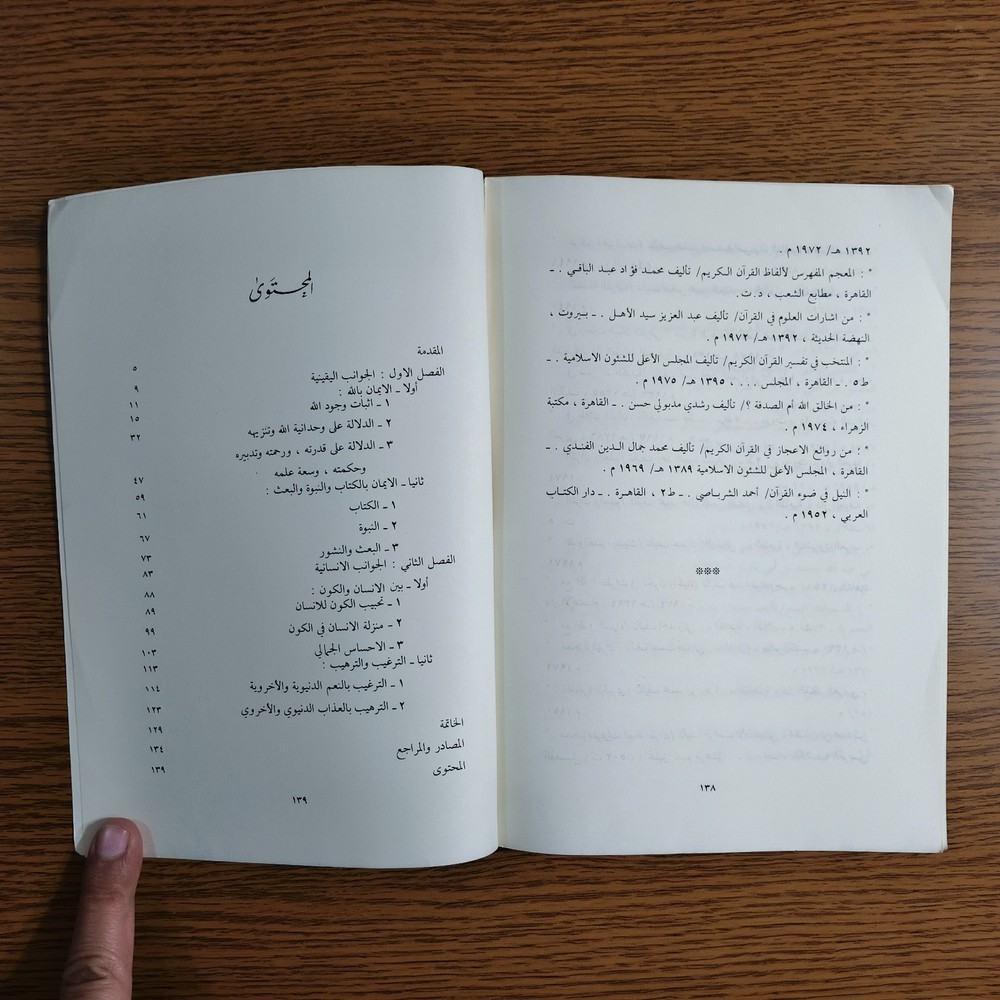 ١٣٩٢ هـ/ ١٩٧٢ م .
* : المعجم المفهرس لألفاظ القرآن الكريم/ تأليف محمد فؤاد عبد الباقي . ـ
القاهرة ، مطابع الشعب ، د.ت.
* : من اشارات العلوم في القرآن/ تأليف عبد العزيز سيد الأهل . ـ بيروت ،
النهضة الحديثة ، ١٣٩٢ هـ/ ١٩٧٢ م .
* : المنتخب في تفسير القرآن الكريم/ تأليف المجلس الأعلى للشئون الاسلامية . ـ
ط٥ . ـ القاهرة ، المجلس . . . ، ١٣٩٥ هـ/ ١٩٧٥ م .
* : من الخالق الله أم الصدفة ؟/ تأليف رشدي مدبولي حسن . ـ القاهرة ، مكتبة
الزهراء ، ١٩٧٤ م .
* ؛ من روائع الاعجاز في القرآن الكريم/ تأليف محمد جمال الدين الفندي . ـ
القاهرة ، المجلس الأعلى للشئون الاسلامية ١٣٨٩ هـ/ ١٩٦٩ م .
* : النيل في ضوء القرآن/ أحمد الشرباصي . ـ ط٢ ، القاهرة . ـ دار الكتاب
العربي ، ١٩٥٢ م .
***
١٣٨
المحتوى
المقدمة ٥
الفصل الاول : الجوانب اليقينية ٩
أولا ـ الايمان بالله : ١١
١ ـ اثبات وجود الله ١٥
٢ ـ الدلالة على وحدانية الله وتنزيهه ٣٢
٣ ـ الدلالة على قدرته ، ورحمته وتدبيره
وحكمته ، وسعة علمه ٤٧
ثانيا ـ الايمان بالكتاب والنبوة والبعث : ٥٩
١ ـ الكتاب ٦١
٢ ـ النبوة ٦٧
٣ ـ البعث والنشور ٧٣
الفصل الثاني : الجوانب الانسانية ٨٣
أولا ـ بين الانسان والكون : ٨٨
١ ـ تحبيب الكون للانسان ٨٩
٢ ـ منزلة الانسان في الكون ٩٩
٣ ـ الاحساس الجمالي ١٠٣
ثانيا ـ الترغيب والترهيب : ١١٣
١ ـ الترغيب بالنعم الدنيوية والأخروية ١١٤
٢ ـ الترهيب بالعذاب الدنيوي والأخروي ١٢٣
الخاتمة ١٢٩
المصادر والمراجع ١٣٤
المحتوى ١٣٩
١٣٩